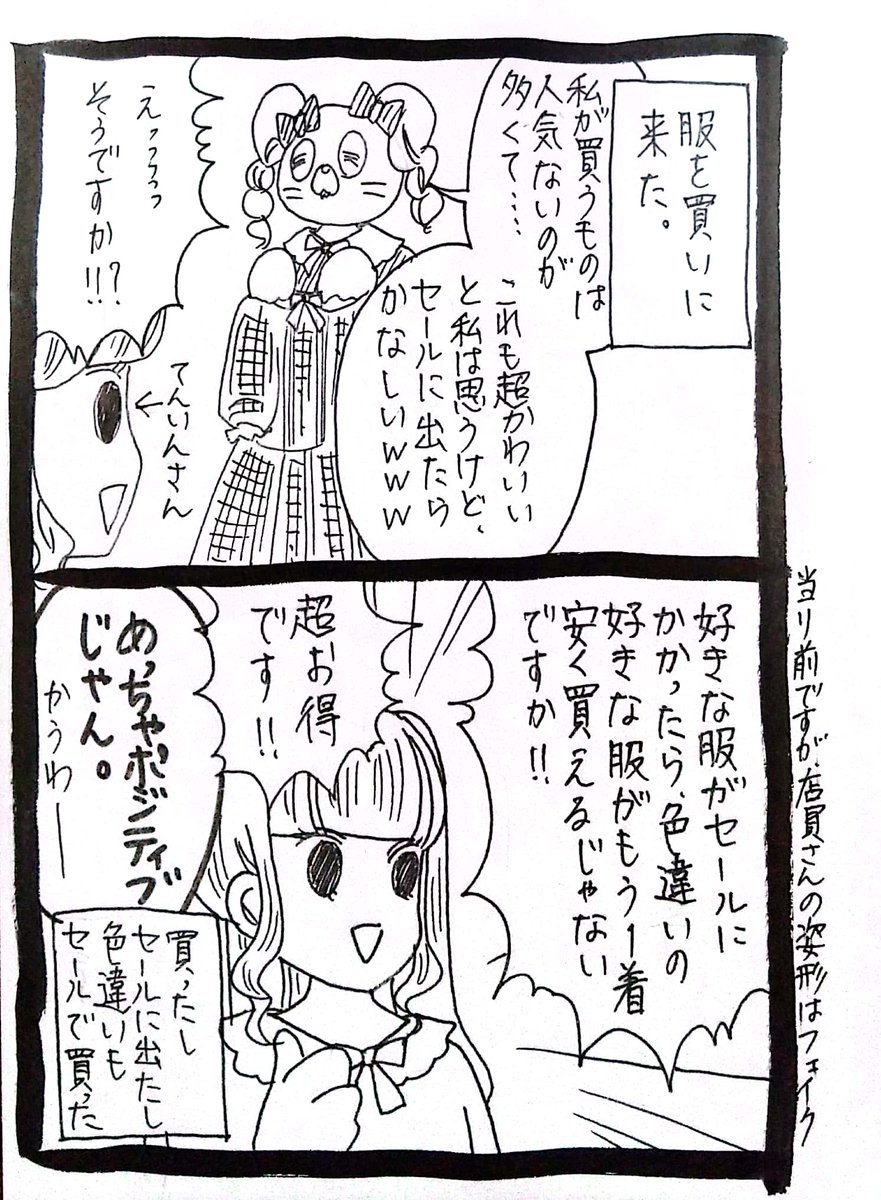 服を買いに
来た。
私が買うものは
人気ないのが
多くて……
これも超かわいい
と私は思うけど、
セールに出たら
かなしいwww
えっっっっ
そうですか!!?
てんいんさん
好きな服がセールに
かかったら、色違いの
好きな服がもう1着
安く買えるじゃない
ですか!!
超お得
です!!
めっちゃポジティブ
じゃん。
かうわー
買ったし
セールに出たし
色違いも
セールで買った
当り前ですが、店員さんの姿形はフェイク